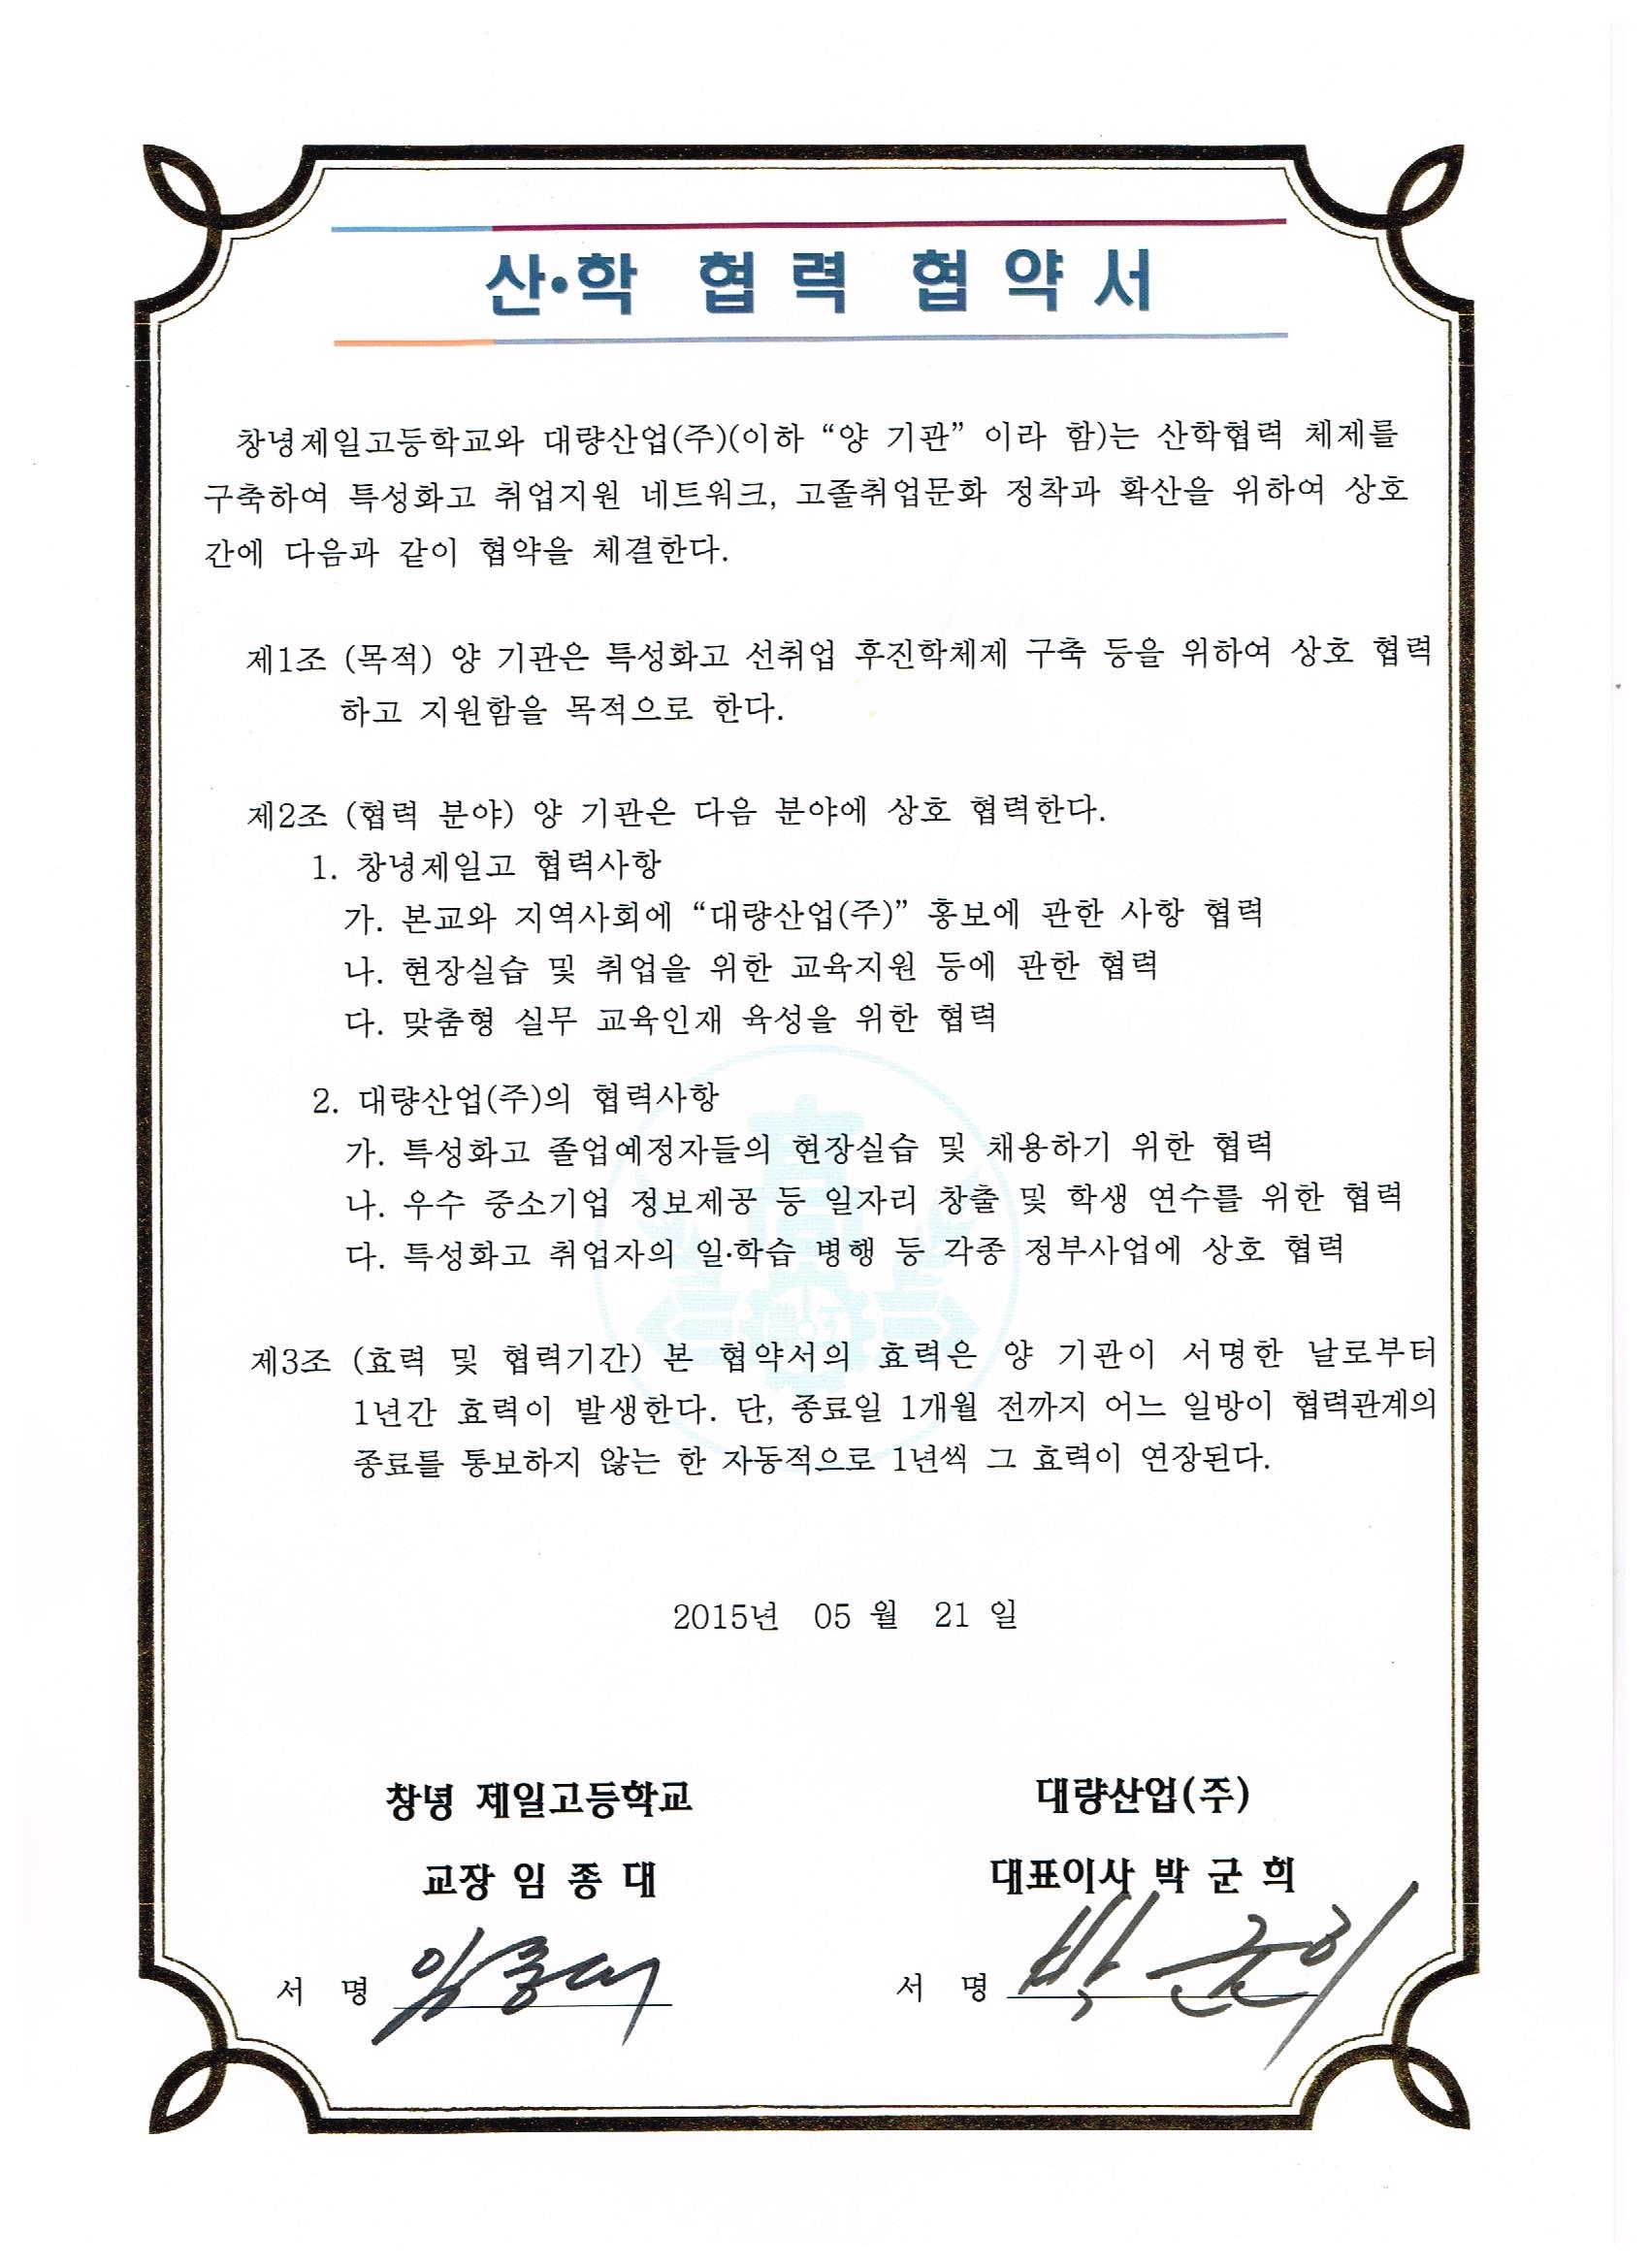 산·학 협력 협약서
창녕제일고등학교와 대량산업(주)(이하 “양 기관” 이라 함)는 산학협력 체제를
구축하여 특성화고 취업지원 네트워크, 고졸취업문화 정착과 확산을 위하여 상호
간에 다음과 같이 협약을 체결한다.
제1조 (목적) 양 기관은 특성화고 선취업 후진학체제 구축 등을 위하여 상호 협력
하고 지원함을 목적으로 한다.
제2조 (협력 분야) 양 기관은 다음 분야에 상호 협력한다.
1. 창녕제일고 협력사항
가. 본교와 지역사회에 “대량산업(주)” 홍보에 관한 사항 협력
나. 현장실습 및 취업을 위한 교육지원 등에 관한 협력
다. 맞춤형 실무 교육인재 육성을 위한 협력
2. 대량산업(주)의 협력사항
가. 특성화고 졸업예정자들의 현장실습 및 채용하기 위한 협력
나. 우수 중소기업 정보제공 등 일자리 창출 및 학생 연수를 위한 협력
다. 특성화고 취업자의 일·학습 병행 등 각종 정부사업에 상호 협력
제3조 (효력 및 협력기간) 본 협약서의 효력은 양 기관이 서명한 날로부터
1년간 효력이 발생한다. 단, 종료일 1개월 전까지 어느 일방이 협력관계의
종료를 통보하지 않는 한 자동적으로 1년씩 그 효력이 연장된다.
2015년 05 월 21 일
창녕 제일고등학교
교장 임 종 대
서 명 임종대
대량산업(주)
대표이사 박 군 희
서 명 박군희